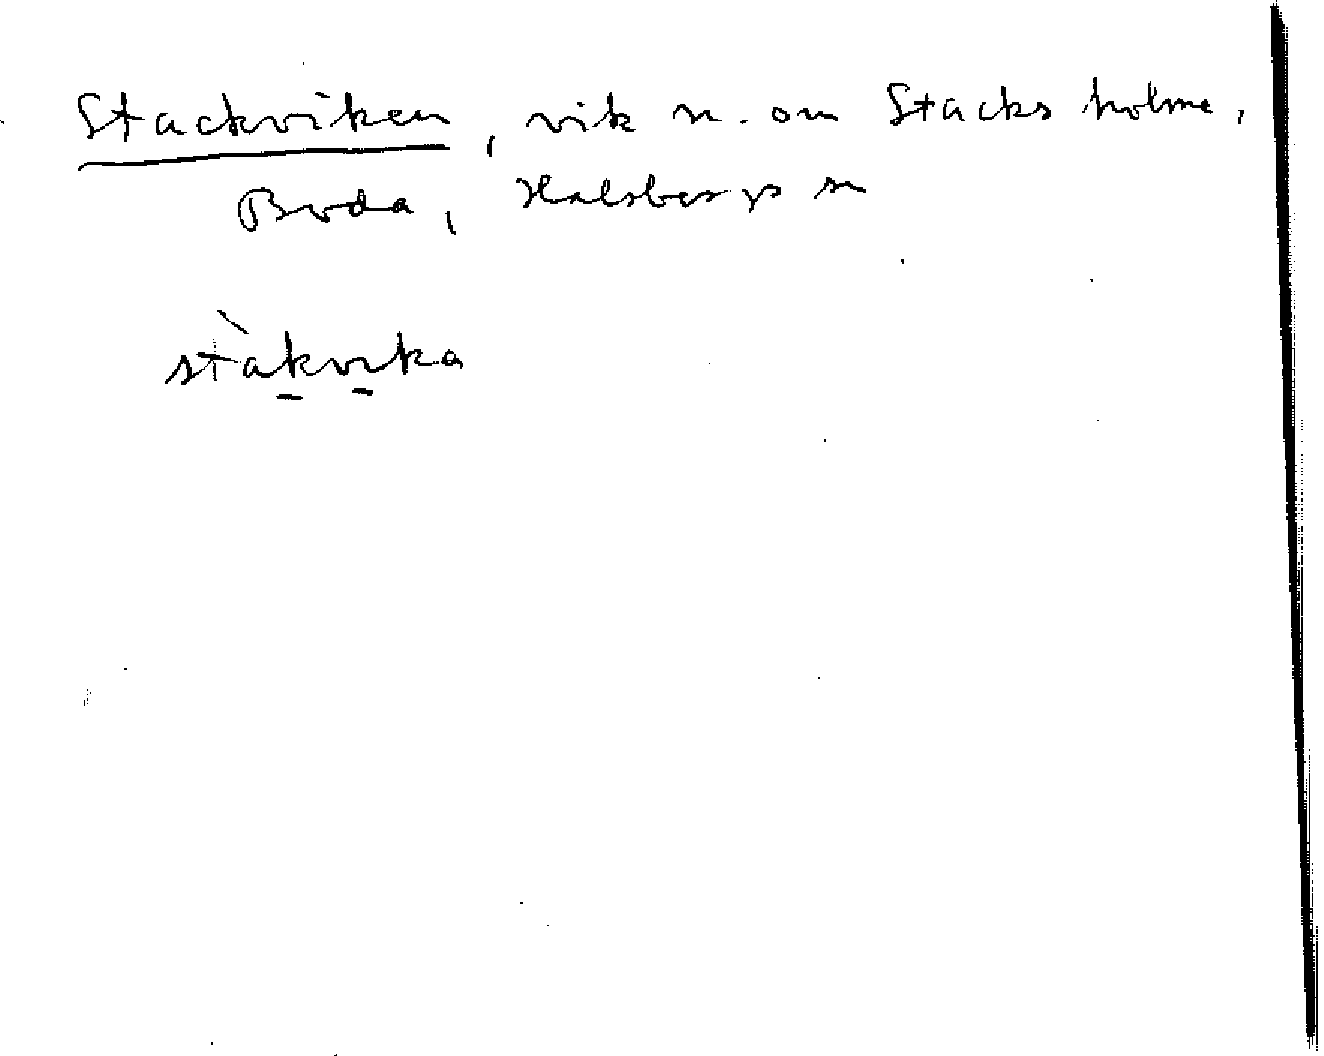 Stackviken, vik n. om Stacks holme,
Boda, Halsbergs sn
stàkvika